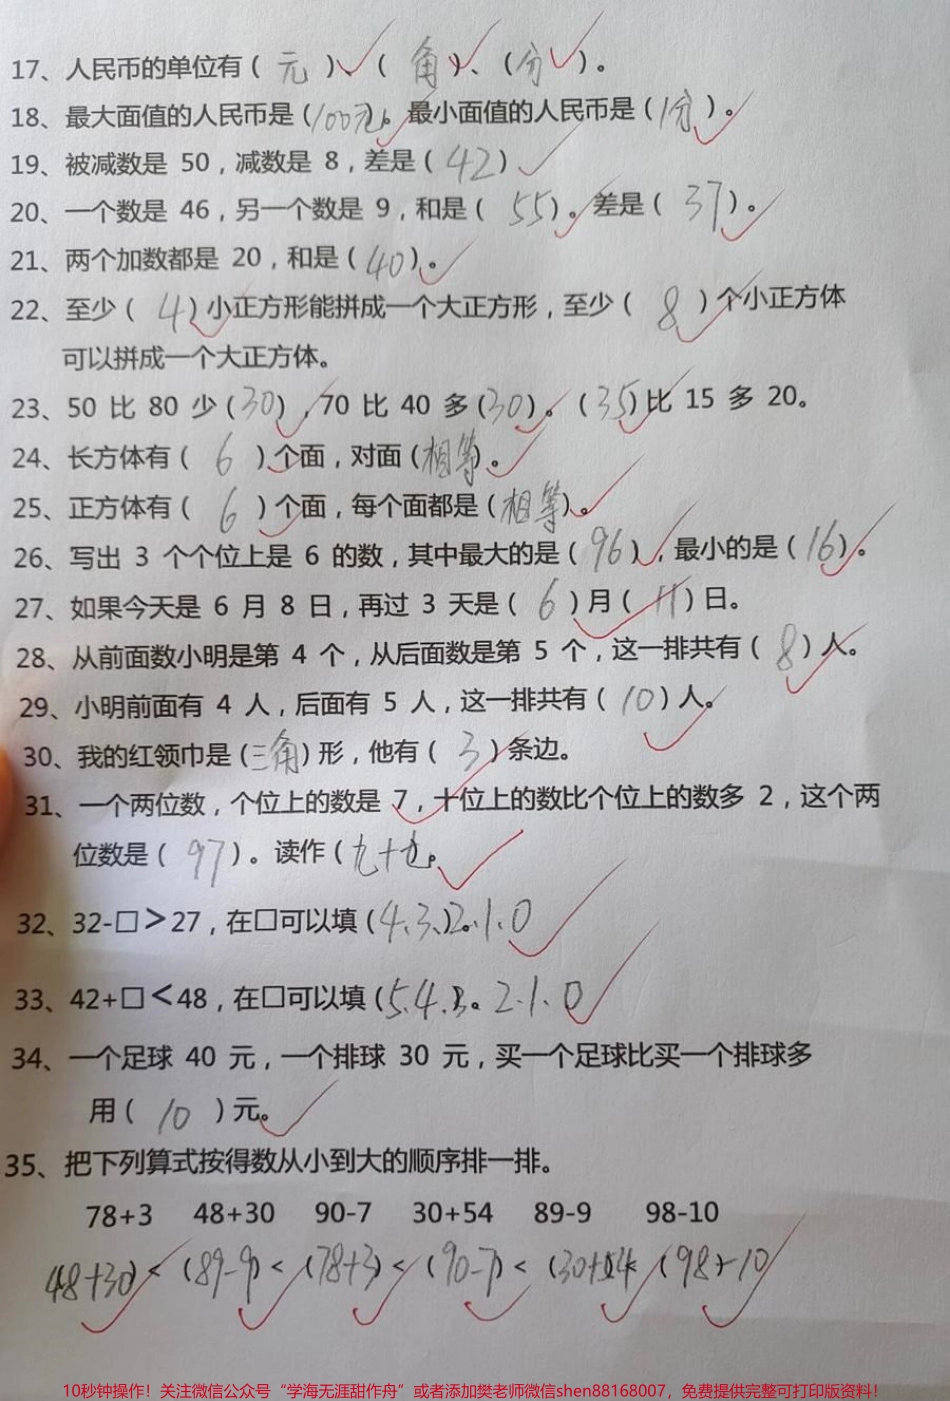 17、人民币的单位有( 元 )、( 角 )、(分 )。
18、最大面值的人民币是(100元)。最小面值的人民币是(1分 )。
19、被减数是 50，减数是 8，差是( 42 )
20、一个数是 46，另一个数是 9，和是( 55 )。差是( 37 )。
21、两个加数都是 20，和是( 40 )。
22、至少( 4 )小正方形能拼成一个大正方形，至少( 8 )个小正方体
可以拼成一个大正方体。
23、50 比 80 少(30)，70 比 40 多(30)。(35)比 15 多 20。
24、长方体有( 6 )个面，对面(相等)。
25、正方体有( 6 )个面，每个面都是(相等)。
26、写出 3 个个位上是 6 的数，其中最大的是( 96 )，最小的是( 16 )。
27、如果今天是 6 月 8 日，再过 3 天是( 6 )月( 11 )日。
28、从前面数小明是第 4 个，从后面数是第 5 个，这一排共有( 8 )人。
29、小明前面有 4 人，后面有 5 人，这一排共有( 10 )人。
30、我的红领巾是(三角)形，他有( 3 )条边。
31、一个两位数，个位上的数是 7，十位上的数比个位上的数多 2，这个两
位数是( 97 )。读作(九十七)。
32、32-□＞27，在□可以填(4、3、)2、1、0
33、42+□＜48，在□可以填(5、4、3)。2、1、0
34、一个足球 40 元，一个排球 30 元，买一个足球比买一个排球多
用( 10 )元。
35、把下列算式按得数从小到大的顺序排一排。
78+3 48+30 90-7 30+54 89-9 98-10
48+30)＜(89-9)＜(78+3)＜(90-7)＜(30+54＜(98)-10
10秒钟操作！关注微信公众号“学海无涯甜作舟”或者添加樊老师微信shen88168007，免费提供完整可打印版资料！